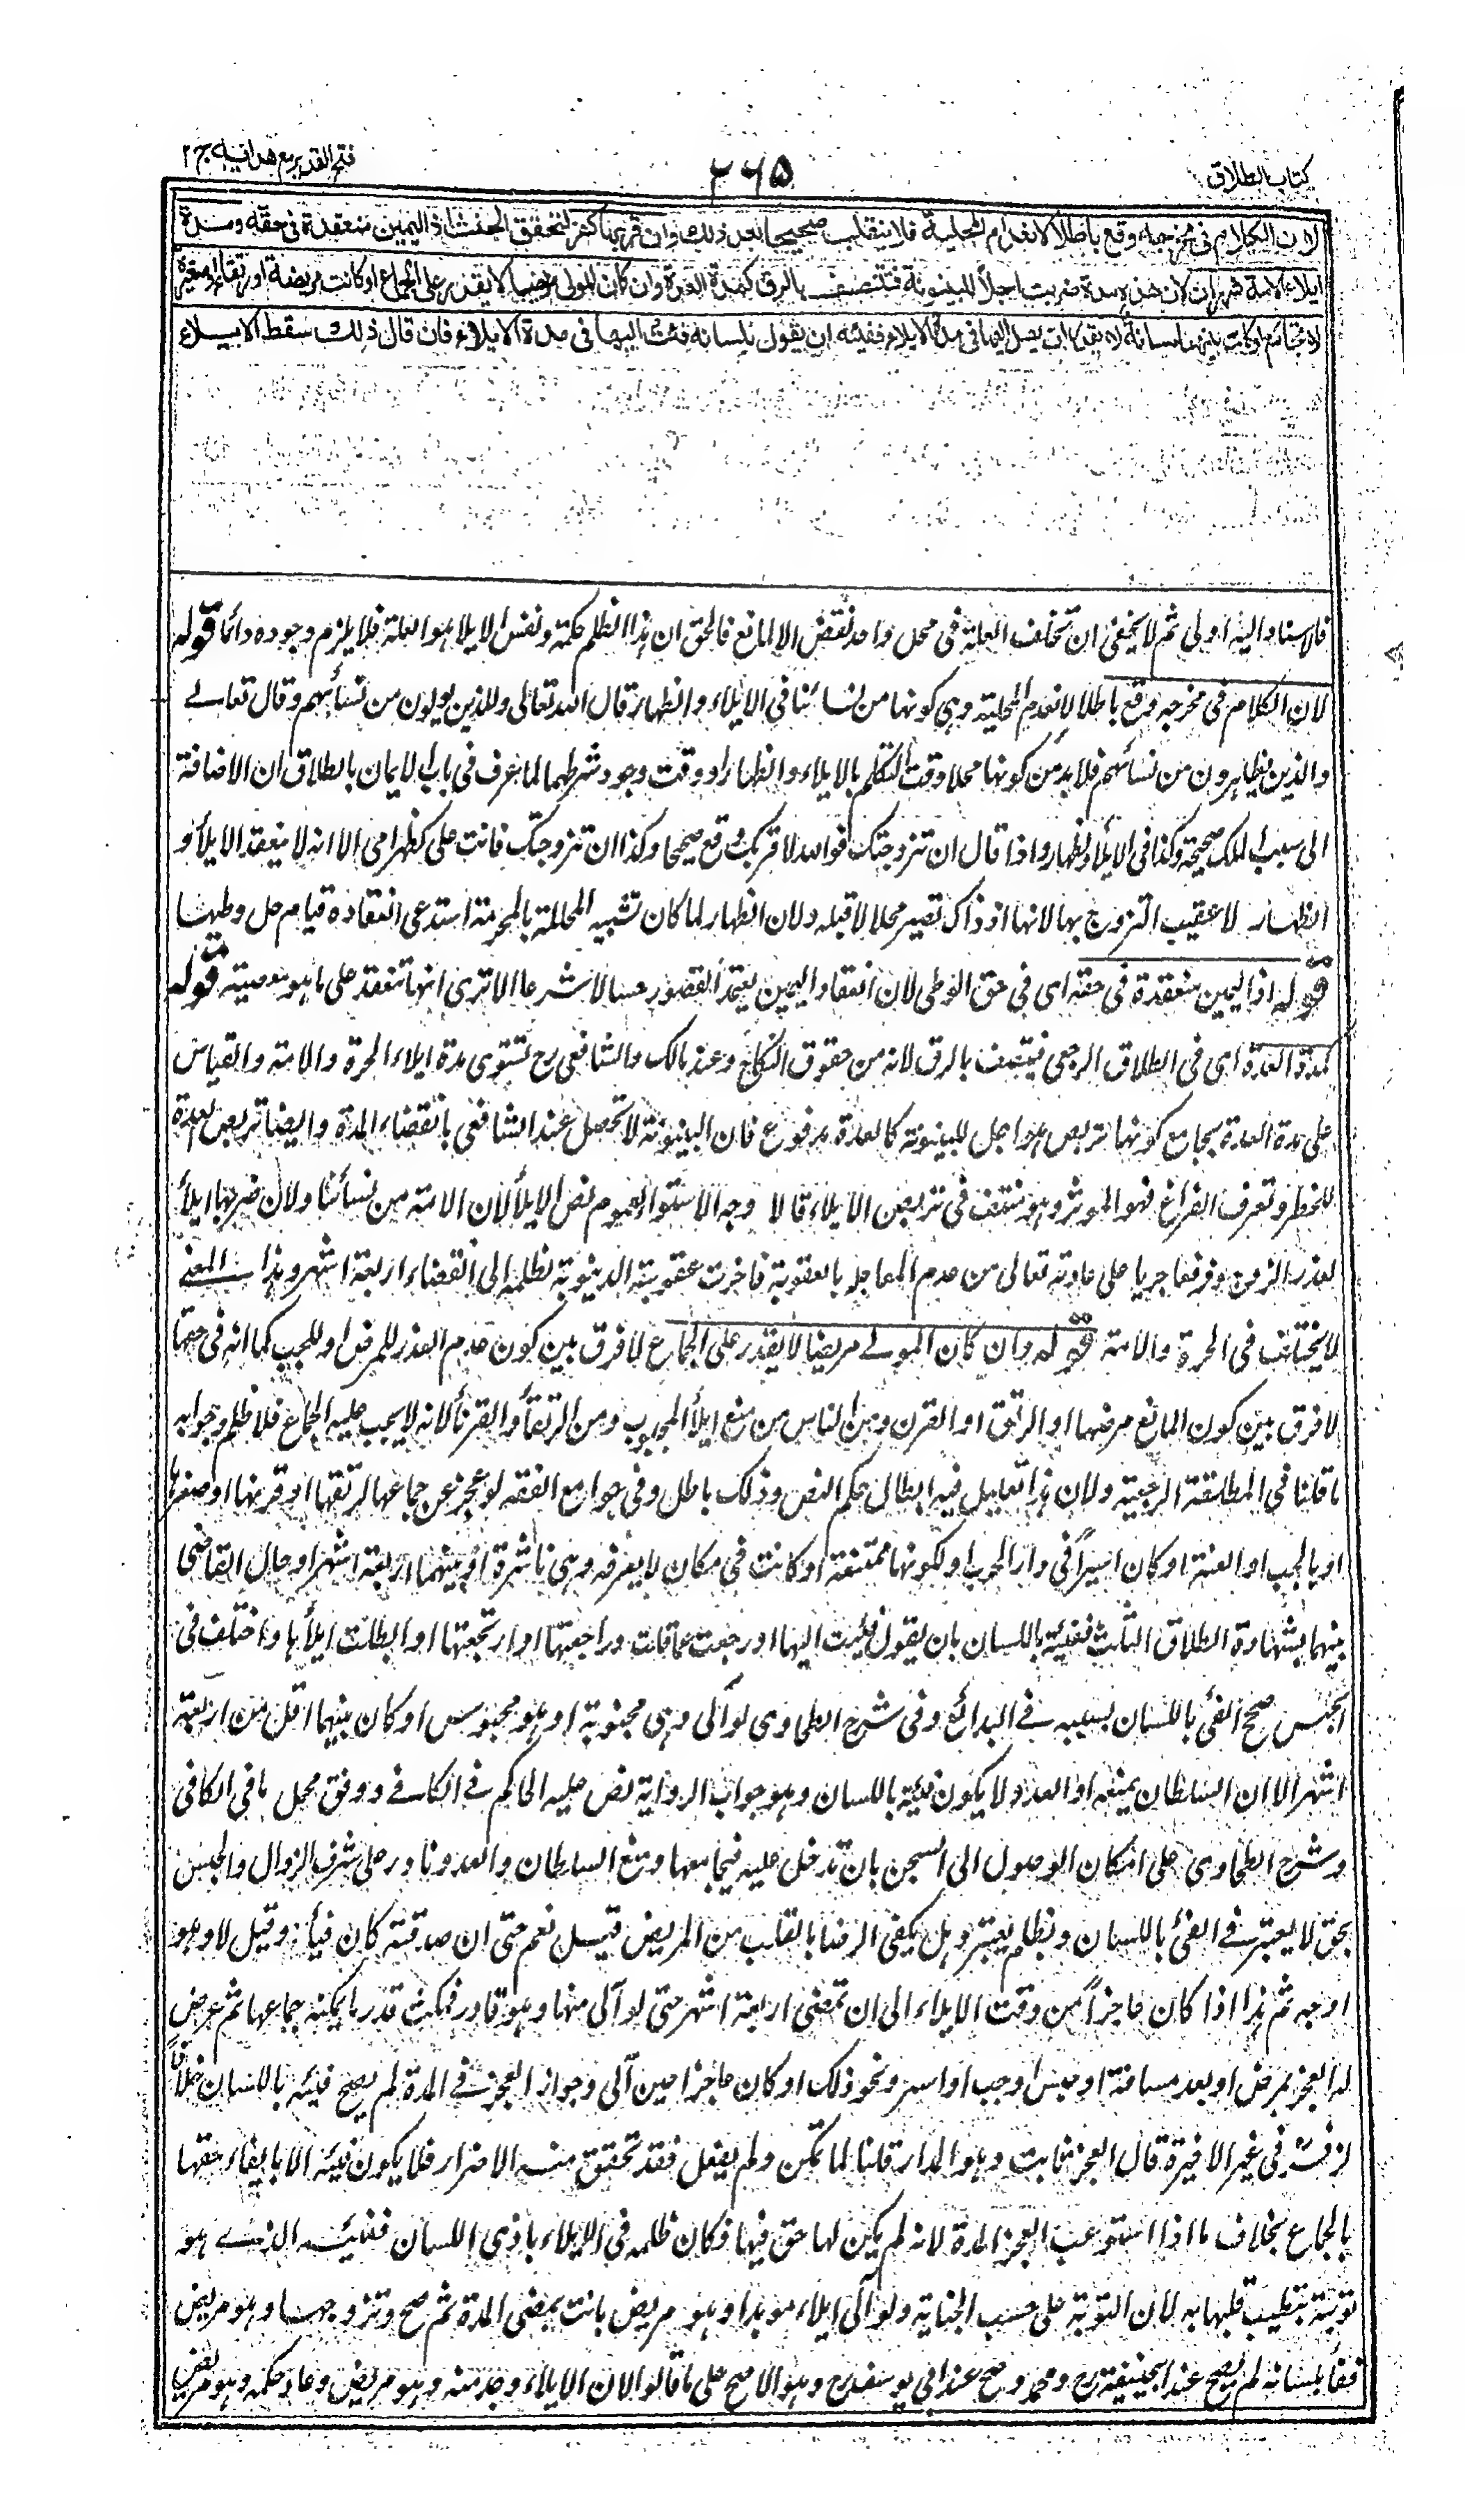 كتاب الطلاق
٢٦٥
فتح القدير مع هدايه ج ٢
لان الكلام فى مخرجه وقع باطلا لانعدام المحلية فلا ينقلب صحيحا بعد ذلك وان قربها كفر لتحقق الحنث اذ اليمين منعقدة فى حقه ومدة
ايلاء الامة شهران لان هذه مدة ضربت اجلا للبينونة فتتنصف بالرق كمدة العدة وان كان المولى مريضا لا يقدر على الجماع او كانت مريضة او رتقاء او صغيرة
لا تجامع او كانت بينهما مسافة لا يقدر ان يصل اليها فى مدة الايلاء ففيئه ان يقول بلسانه فئت اليها فى مدة الايلاء فان قال ذلك سقط الايلاء
فالاسناد اليه اولى ثم لا يخفى ان تخلف العلة فى محل واحد نقض الا لمانع فالحق ان هذا الظلم حكمة ونفس الايلاء هو العلة فلا يلزم وجوده دائما قوله
لان الكلام فى مخرجه وقع باطلا لانعدام المحلية وهى كونها من نسائنا فى الايلاء والظهار قال الله تعالى وللذين يولون من نسائهم وقال تعالے
والذين يظاهرون من نسائهم فلا بد من كونها محلا وقت التكلم بالايلاء والظهار او وقت وجود شرطهما لما عرف فى باب الايمان بالطلاق ان الاضافة
الى سبب الملك صحيحة وكذا فى الايلاء والظهار واذا قال ان تزوجتك فوالله لا قربتك وقع صحيحا وكذا ان تزوجتك فانت على كظهر امى الا انه لا ينعقد الايلاء و
الظهار لا عقيب التزوج بها لانها اذ ذاك تصير محلا لا قبله ولان الظهار لما كان تشبيه المحللة بالمحرمة استدعى انعقاده قيام حل وطيها
قوله اذ اليمين منعقدة فى حقه اى فى حق الوطى لان انعقاد اليمين يعتمد القصور حسا لا شرعا الا ترى انها تنعقد على ما هو معصيته قوله
كمدة العدة اى فى الطلاق الرجعى فيتنصف بالرق لانه من حقوق النكاح وعند مالك والشافعى رح تستوى مدة ايلاء الحرة والامة والقياس
على مدة العدة بجامع كونها تربص هو اجل للبينونة كالعدة مدفوع فان البينونة لا تحصل عند الشافعى بانقضاء المدة وايضا تربص العدة
للخطر وتعرف الفراغ فهو المؤثر وهو منتف فى تربص الايلاء قالا وجه الاستواء عموم نص الايلاء لان الامة من نسائنا ولان ضربها ايلاء
لعذر الزوج وفرفعا جريا على عادته تعالى من عدم المعاجلة بالعقوبة فاخرت عقوبته الدينوية لظلمه الى انقضاء اربعة اشهر وهذا المعنے
لا يختلف فى الحرة والامة قوله وان كان المولے مريضا لا يقدر على الجماع لا فرق بين كون عدم العذر للمرض او للجب كما انه فى حقها
لا فرق بين كون المانع مرضها او الرتق او القرن ومن الناس من منع ايلاء المجبوب ومن الرتقاء والقرناء لانه لا يجب عليه الجماع فلا ظلم وجوابه
ما قلنا فى المطلقة الرجعية ولان هذا تعليل فيه ابطال حكم النص وذلك باطل وفى جوامع الفقه لو عجز عن جماعها لرتقها او قرنها او صغرها
او بالجب او العنة او كان اسيرا فى دار الحرب او لكونها ممتنعة او كانت فى مكان لا يعرفه وهى ناشزة او بينهما اربعة اشهر او حال القاضى
بينهما بشهادة الطلاق الثلث ففيئه باللسان بان يقول فئت اليها او رجعت عما قلت وراجعتها او ارتجعتها او ابطلت ايلاءها واختلف فى
الحبس صحح الفئ باللسان بسببه فے البدائع وفى شرح الطحاوى لو آلى وهى مجنونة او هو محبوس او كان بينهما اقل من اربعة
اشهر الا ان السلطان يمنعه او العدو لا يكون فيئه باللسان وهو جواب الرواية نص عليه الحاكم فے الكافے ووفق محمل ما فى الكافى
وشرح الطحاوى على امكان الوصول الى السجن بان تدخل عليه فيجامعها ومنع السلطان والعدو نادر على شرف الزوال والحبس
بحق لا يعتبر فے الفئ باللسان وبظلم يعتبر وهل يكفى الرضا بالقلب من المريض قيل نعم حتى ان صدقته كان فيأ وقيل لا وهو
اوجه ثم هذا اذا كان عاجزا من وقت الايلاء الى ان تمضى اربعة اشهر حتى لو آلى منها وهو قادر فمكث قدر ما يمكنه جماعها ثم عرض
له العجز بمرض او بعد مسافة او حبس او جب او اسر ونحو ذلك او كان عاجزا حين آلى وجواز العجز فے المدة لم يصح فيئه باللسان خلافا
لزفر فى غير الاخيرة قال العجز ثابت وهو المدار قلنا لما تمكن ولم يفعل فقد تحقق منه الاضرار فلا يكون فيئه الا بايفاء حقها
بالجماع بخلاف ما اذا استوعب العجز المدة لانه لم يكن لها حق فيها فكان ظلمه فى الايلاء باذى اللسان ففيئه الذے هو
توبته بتطييب قلبها به لان التوبة على حسب الجناية ولو آلى ايلاء موبدا وهو مريض بانت بمضى المدة ثم صح وتزوجها وهو مريض
ففاء بلسانه لم يصح عند ابيحنيفة رح ومحمد وصح عند ابى يوسف رح وهو الاصح على ما قالوا لان الايلاء وجد منه وهو مريض وعاد حكمه وهو مريض